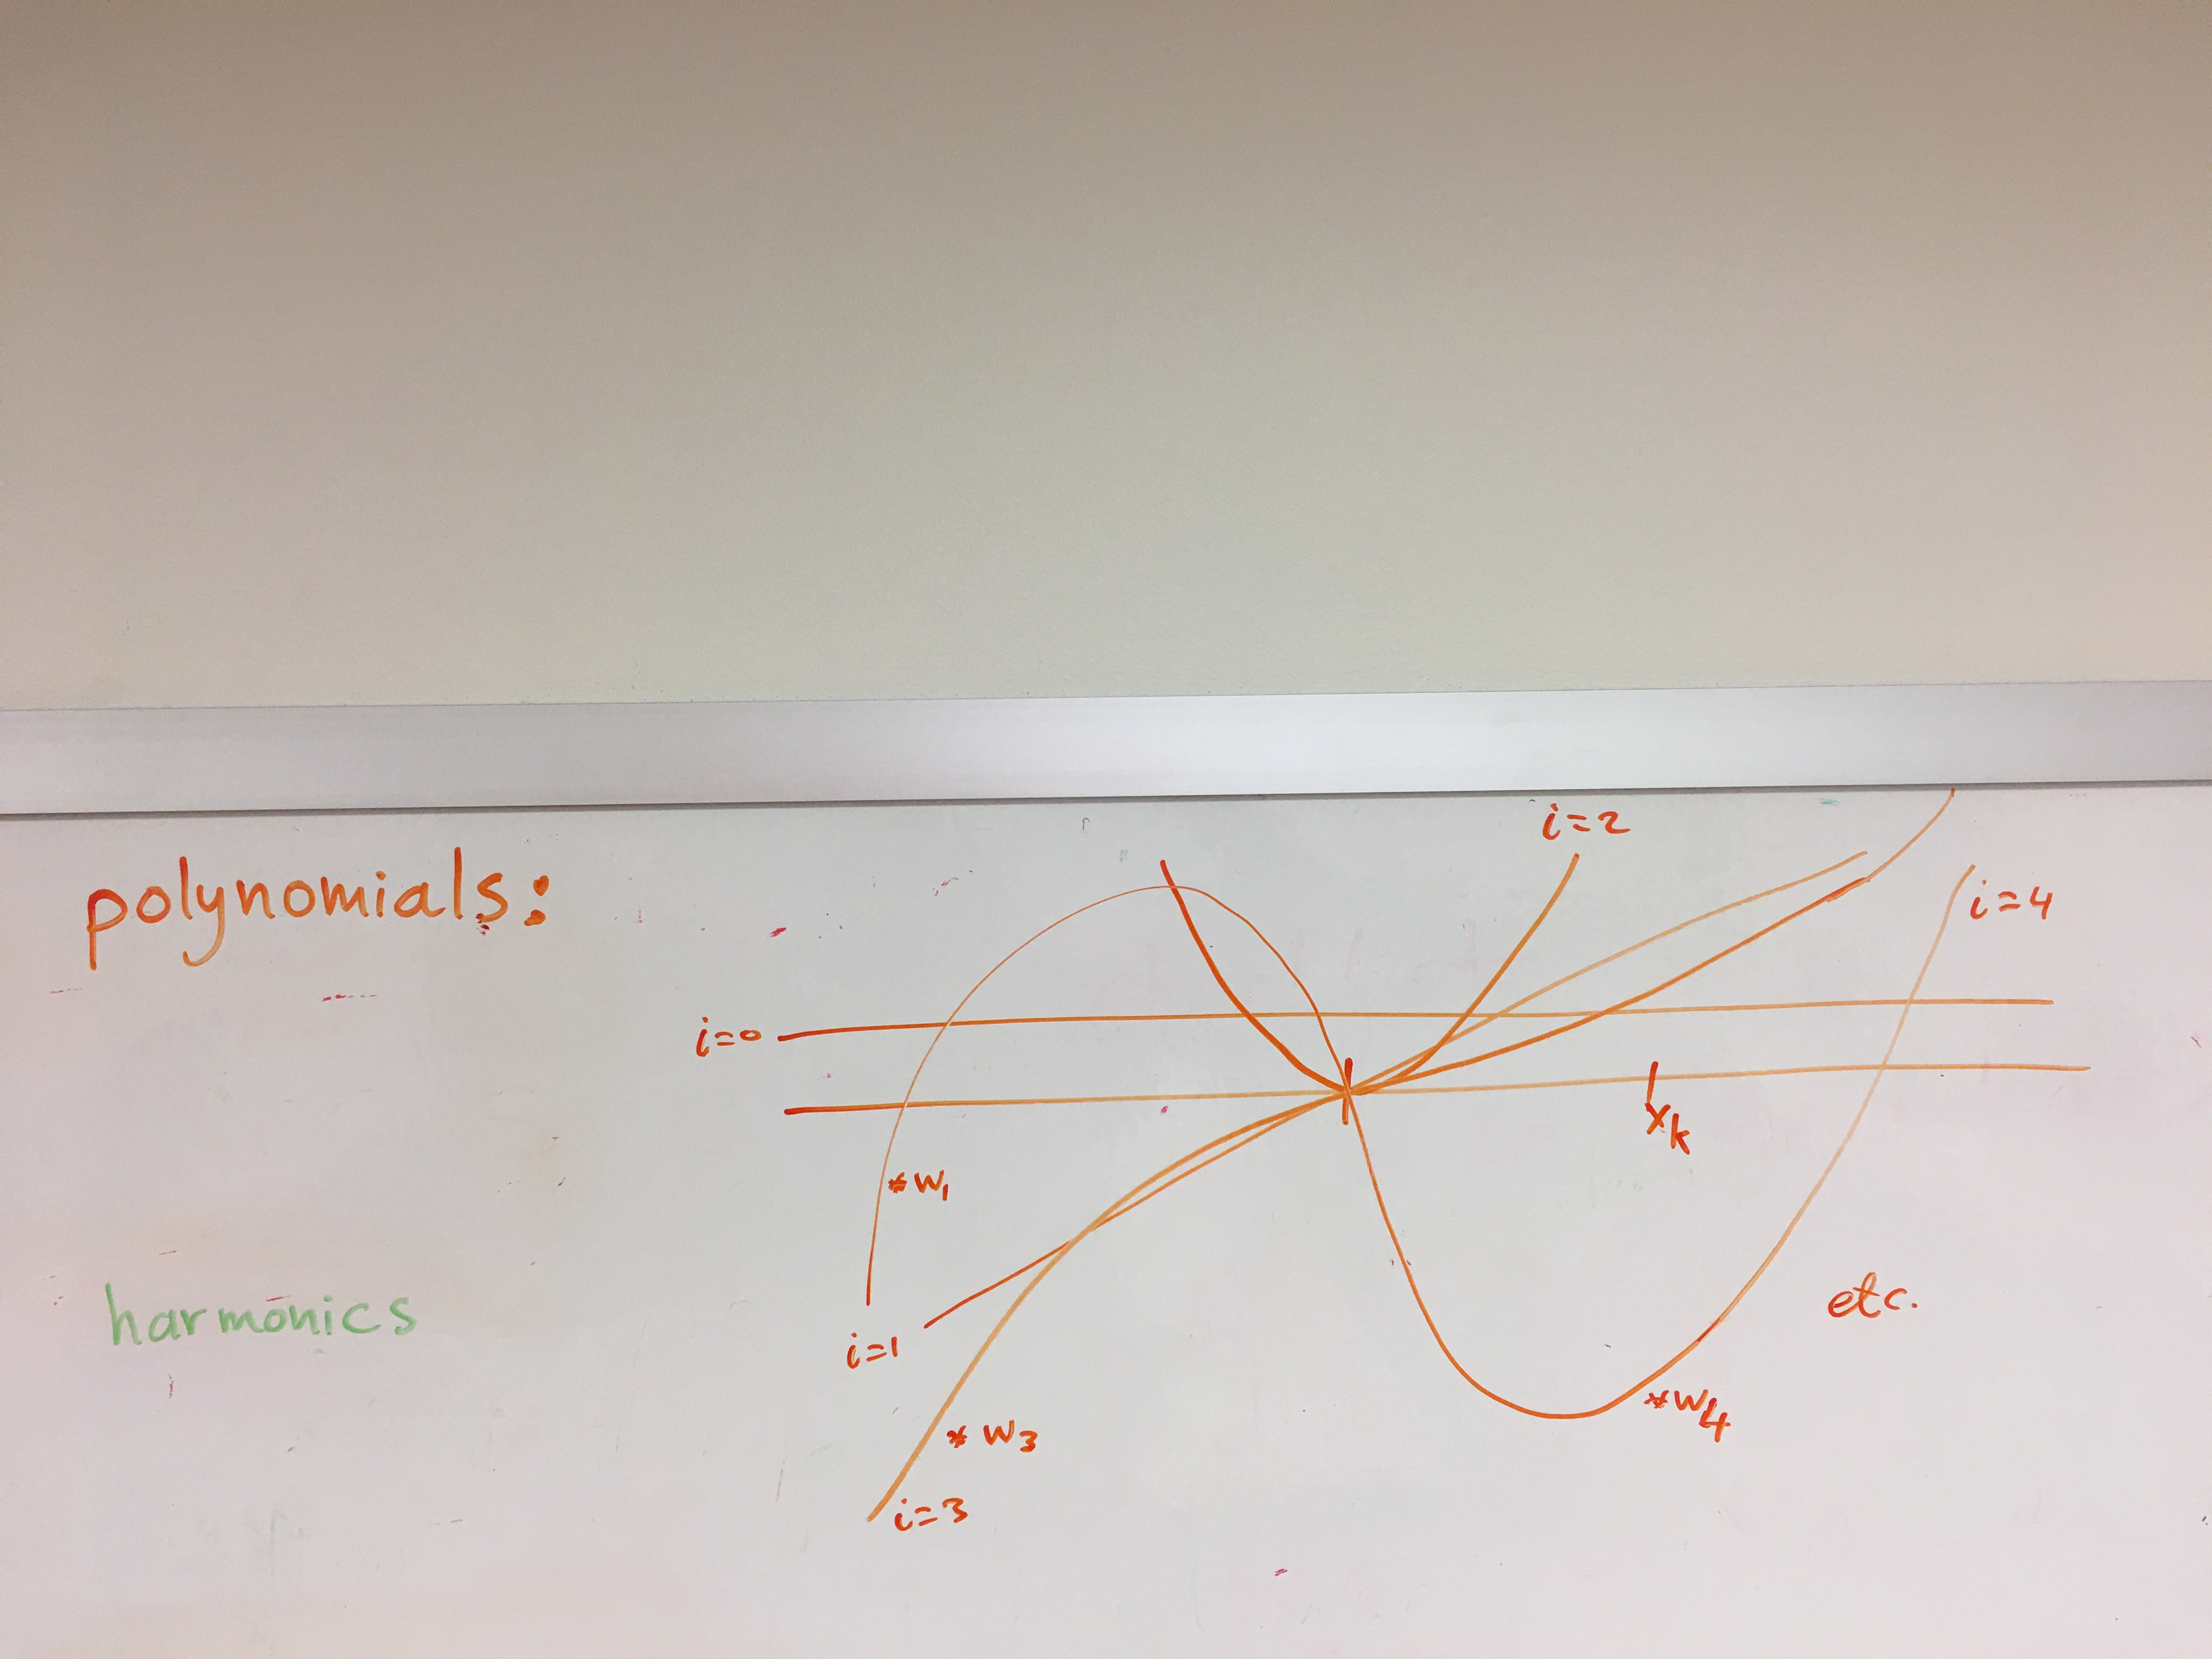 polynomials:
i=2
i=4
i=0
x_k
*w₁
harmonics
etc.
i=1
*w₄
*w₃
i=3